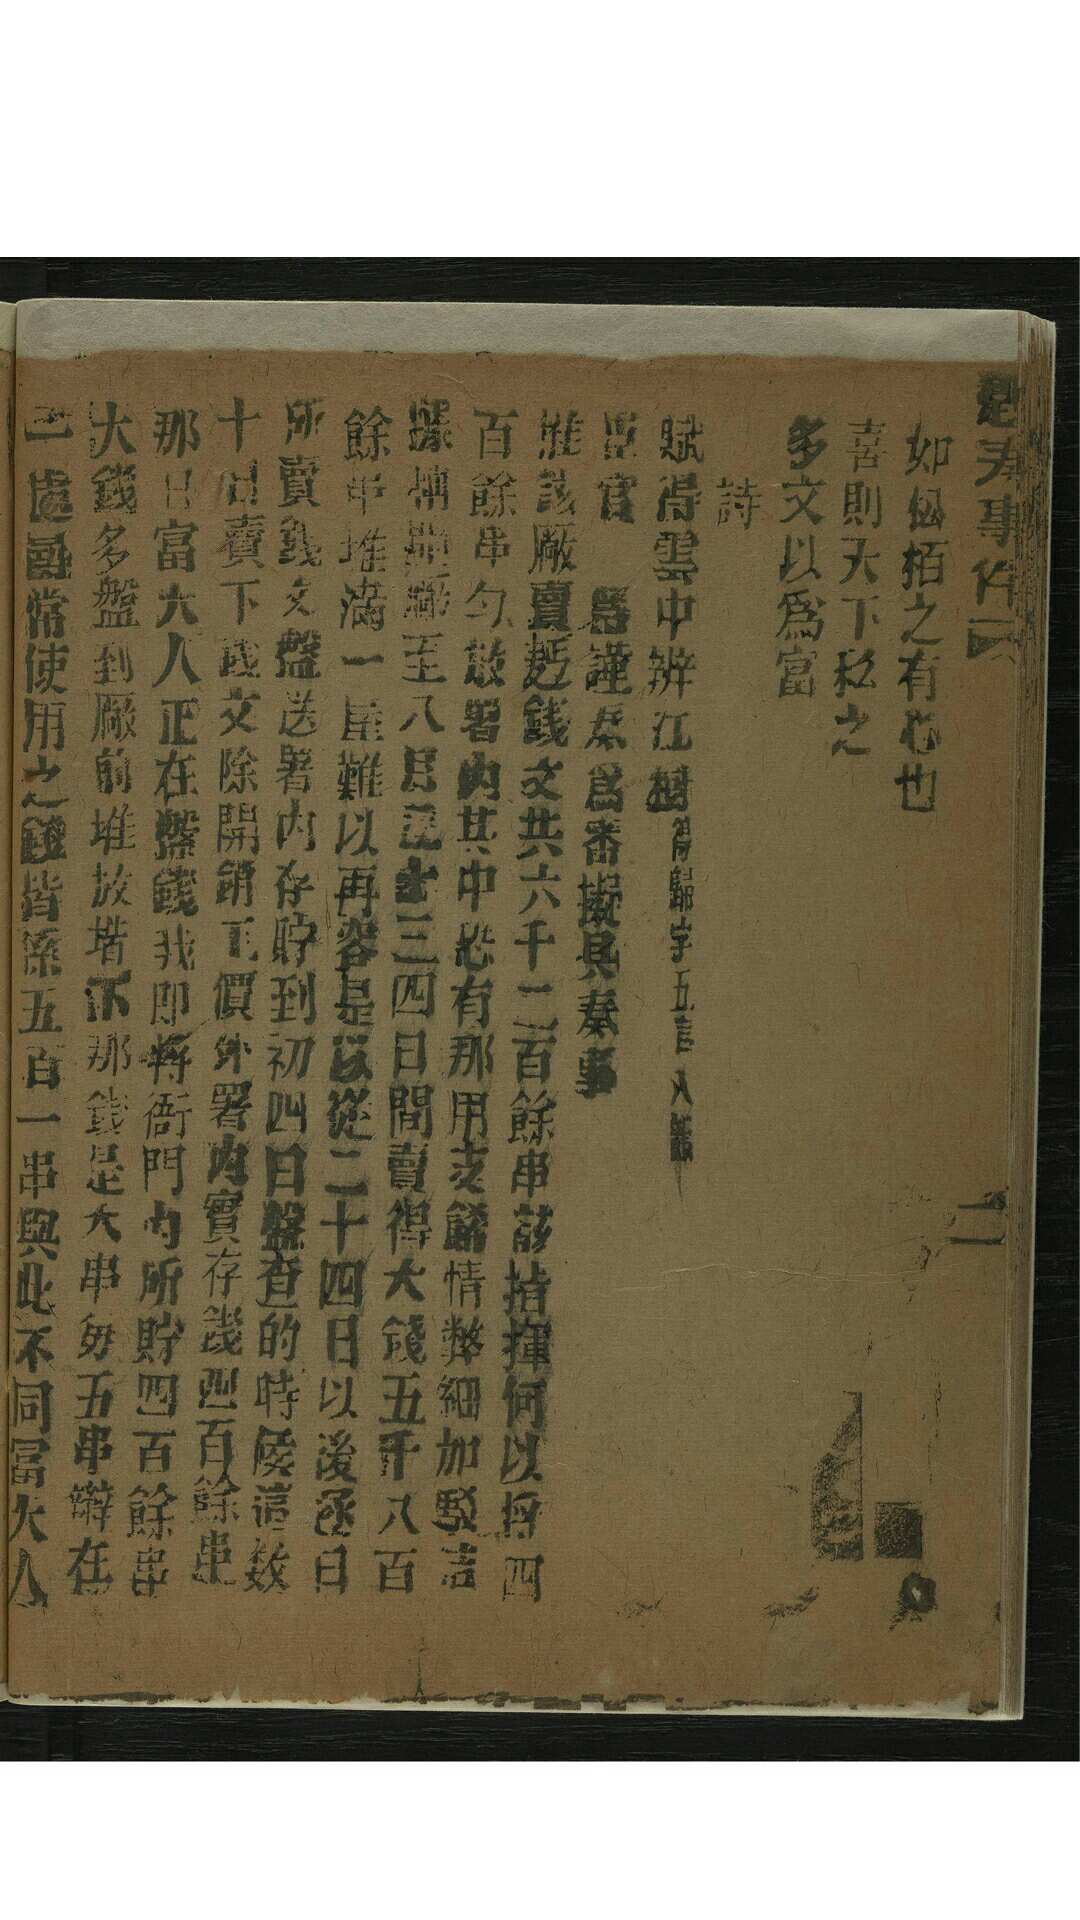 如松栢之有心也
喜則天下私之
多文以爲富
詩
賦得雲中辨江樹得歸字五言八韻
臣官 等謹奏爲審擬具奏事
該厰賣過錢文共六千二百餘串該指揮何以將四
百餘串匀散署內其中恐有那用支餙情弊細加駁詰
至八月三四日間賣得大錢五千八百
餘串堆滿一屋難以再容是以從二十四日以後逐日
所賣錢文盤送署內存貯到初四日盤查的時候這数
十日賣下錢文除開銷工價外署內實存錢四百餘串
那日富大人正在盤錢我即將衙門內所貯四百餘串
大錢多盤到厰前堆放那錢是大串每五串辮在
一處尋常使用之錢皆係五百一串與此不同富大人
二